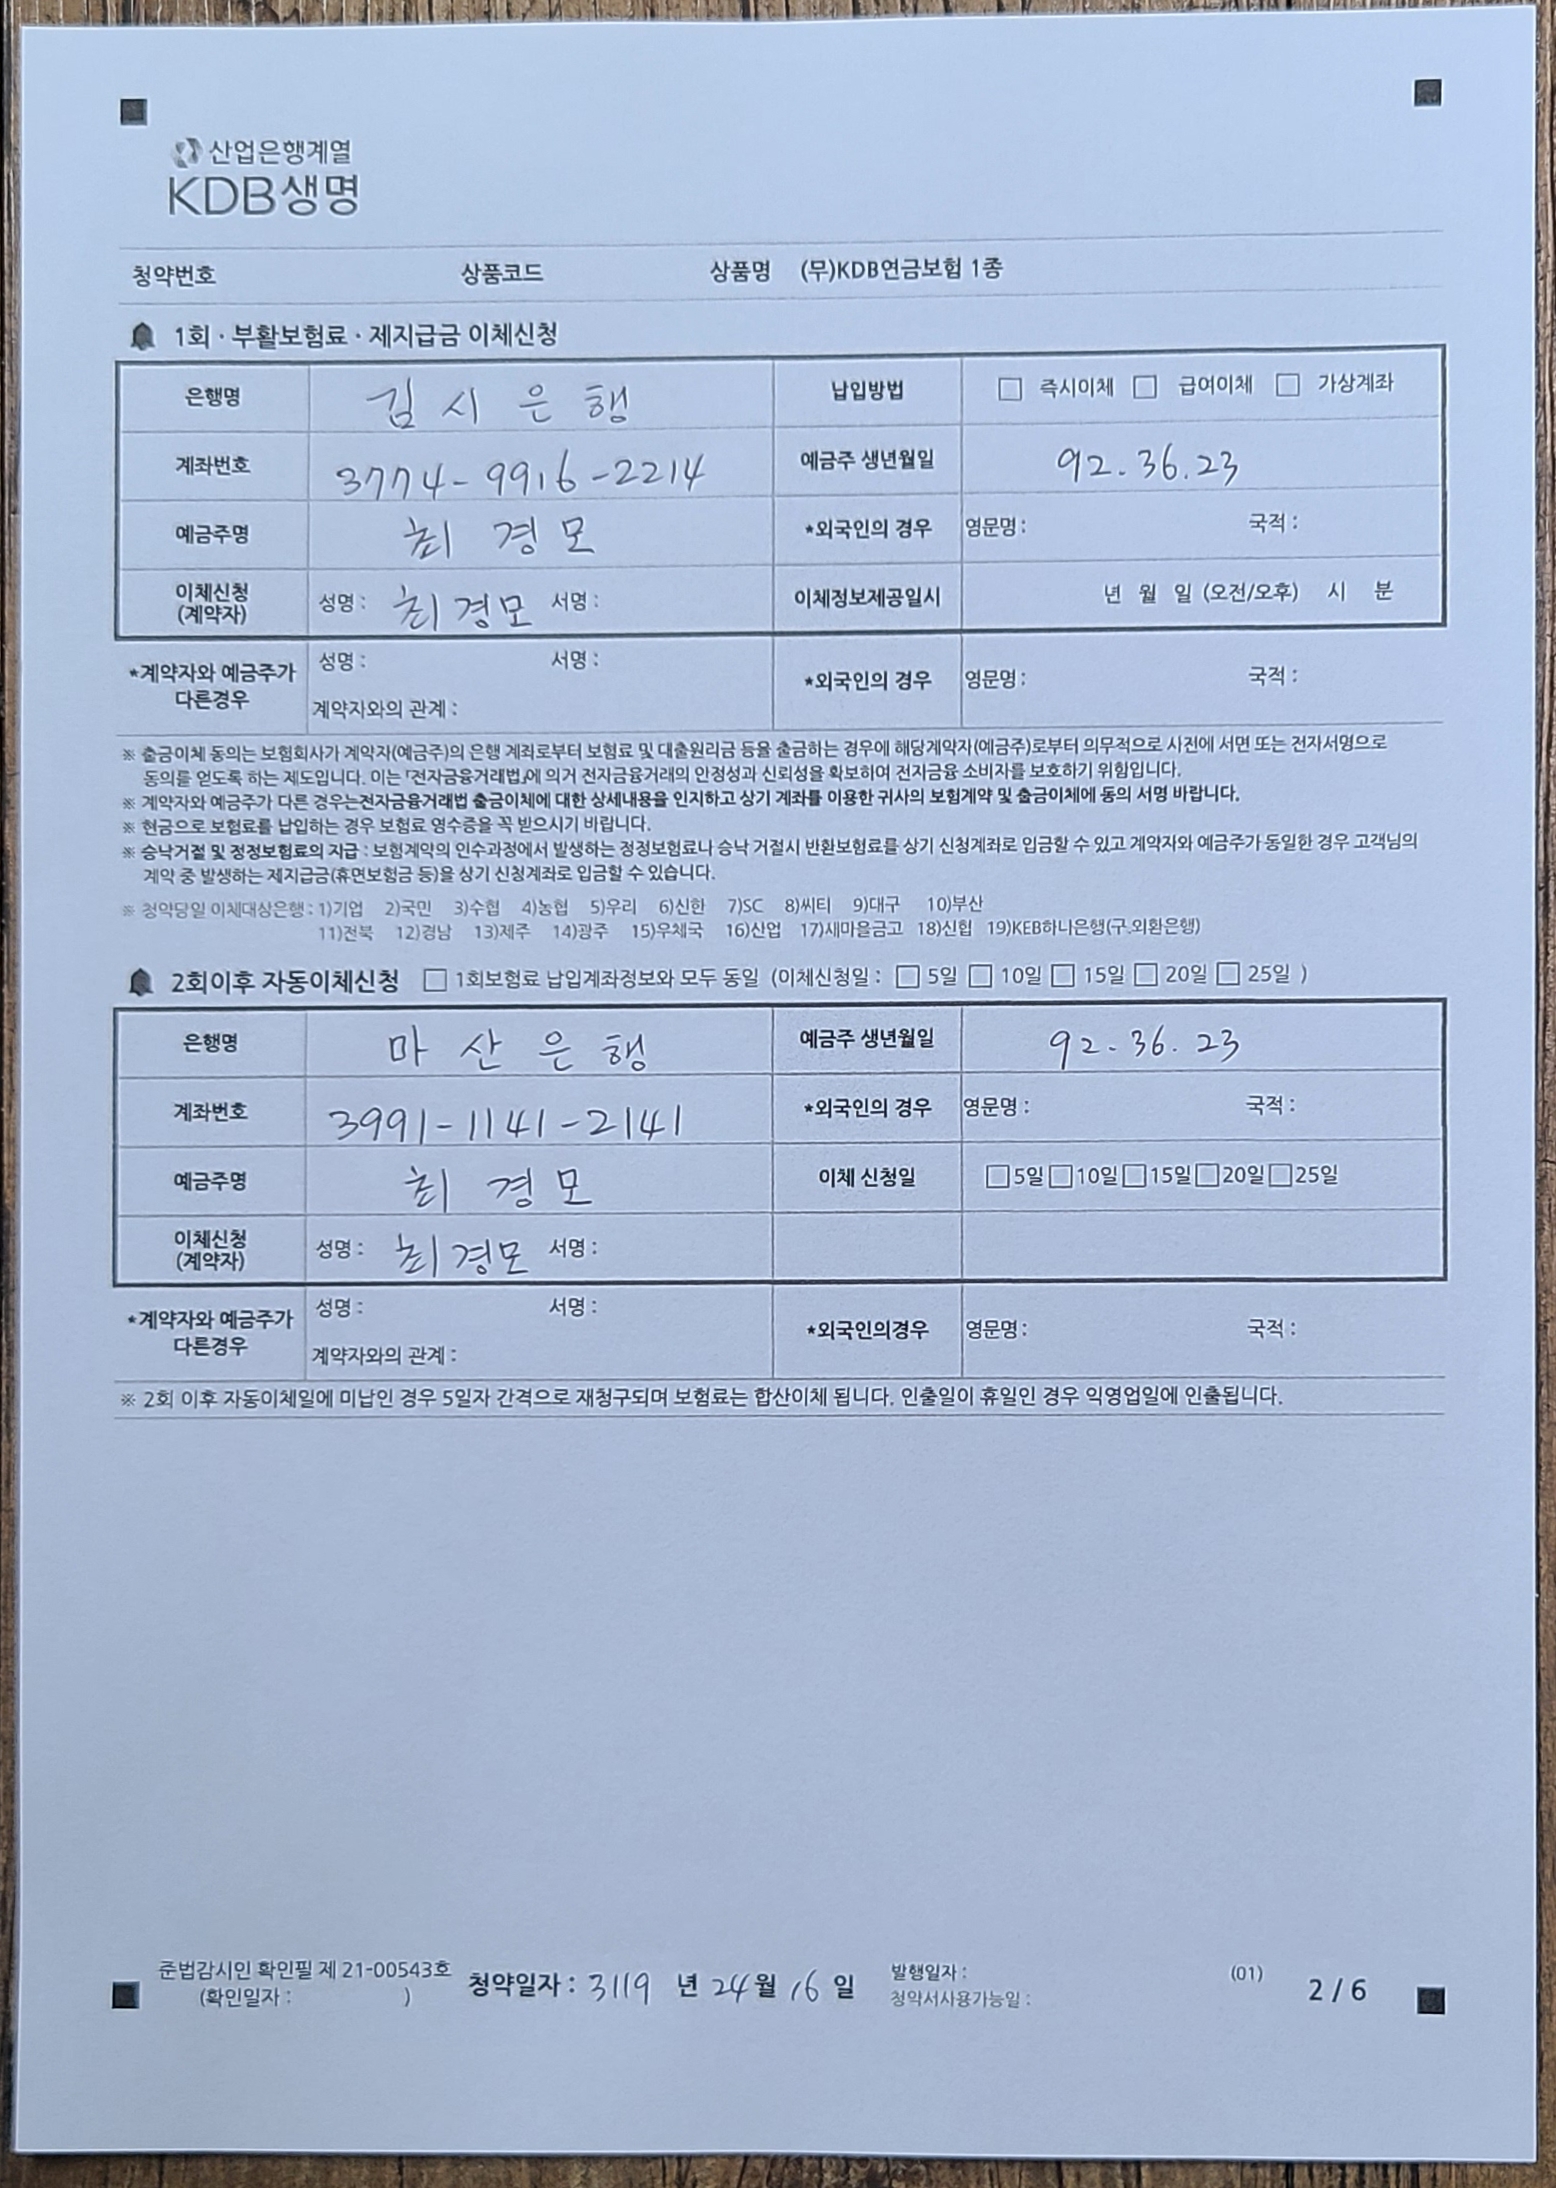 산업은행계열
KDB생명
청약번호 상품코드 상품명 (무)KDB연금보험 1종
1회 · 부활보험료 · 제지급금 이체신청
은행명 김시은행 납입방법 □ 즉시이체 □ 급여이체 □ 가상계좌
계좌번호 3774-9916-2214 예금주 생년월일 92.36.23
예금주명 최경모 *외국인의 경우 영문명 : 국적 :
이체신청 (계약자) 성명 : 최경모 서명 : 이체정보제공일시 년 월 일 (오전/오후) 시 분
*계약자와 예금주가 다른경우 성명 : 서명 : *외국인의 경우 영문명 : 국적 :
계약자와의 관계 :
※ 출금이체 동의는 보험회사가 계약자(예금주)의 은행 계좌로부터 보험료 및 대출원리금 등을 출금하는 경우에 해당계약자(예금주)로부터 의무적으로 사전에 서면 또는 전자서명으로
동의를 얻도록 하는 제도입니다. 이는 「전자금융거래법」에 의거 전자금융거래의 안정성과 신뢰성을 확보하여 전자금융 소비자를 보호하기 위함입니다.
※ 계약자와 예금주가 다른 경우는전자금융거래법 출금이체에 대한 상세내용을 인지하고 상기 계좌를 이용한 귀사의 보험계약 및 출금이체에 동의 서명 바랍니다.
※ 현금으로 보험료를 납입하는 경우 보험료 영수증을 꼭 받으시기 바랍니다.
※ 승낙거절 및 정정보험료의 지급 : 보험계약의 인수과정에서 발생하는 정정보험료나 승낙 거절시 반환보험료를 상기 신청계좌로 입금할 수 있고 계약자와 예금주가 동일한 경우 고객님의
계약 중 발생하는 제지급금(휴면보험금 등)을 상기 신청계좌로 입금할 수 있습니다.
※ 청약당일 이체대상은행 : 1)기업 2)국민 3)수협 4)농협 5)우리 6)신한 7)SC 8)씨티 9)대구 10)부산
11)전북 12)경남 13)제주 14)광주 15)우체국 16)산업 17)새마을금고 18)신협 19)KEB하나은행(구.외환은행)
2회이후 자동이체신청 □ 1회보험료 납입계좌정보와 모두 동일 (이체신청일 : □ 5일 □ 10일 □ 15일 □ 20일 □ 25일 )
은행명 마산은행 예금주 생년월일 92.36.23
계좌번호 3991-1141-2141 *외국인의 경우 영문명 : 국적 :
예금주명 최경모 이체 신청일 □5일 □10일 □15일 □20일 □25일
이체신청 (계약자) 성명 : 최경모 서명 :
*계약자와 예금주가 다른경우 성명 : 서명 : *외국인의경우 영문명 : 국적 :
계약자와의 관계 :
※ 2회 이후 자동이체일에 미납인 경우 5일자 간격으로 재청구되며 보험료는 합산이체 됩니다. 인출일이 휴일인 경우 익영업일에 인출됩니다.
준법감시인 확인필 제 21-00543호 청약일자 : 3119 년 24 월 16 일 발행일자 : (01) 2 / 6
(확인일자 : ) 청약서사용가능일 :